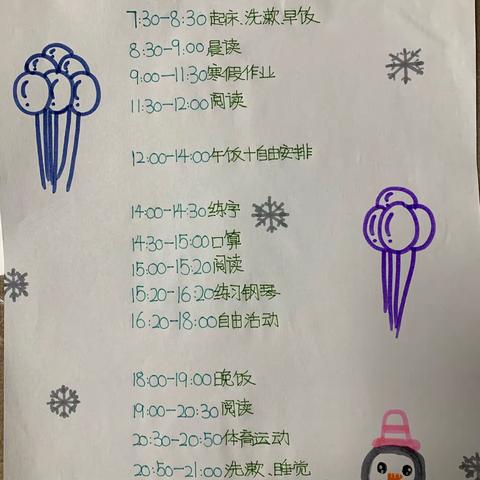 7:30-8:30起床、洗漱、早饭
8:30-9:00晨读
9:00-11:30寒假作业
11:30-12:00阅读
12:00-14:00午饭+自由安排
14:00-14:30练字
14:30-15:00口算
15:00-15:20阅读
15:20-16:20练习钢琴
16:20-18:00自由活动
18:00-19:00晚饭
19:00-20:30阅读
20:30-20:50体育运动
20:50-21:00洗漱、睡觉